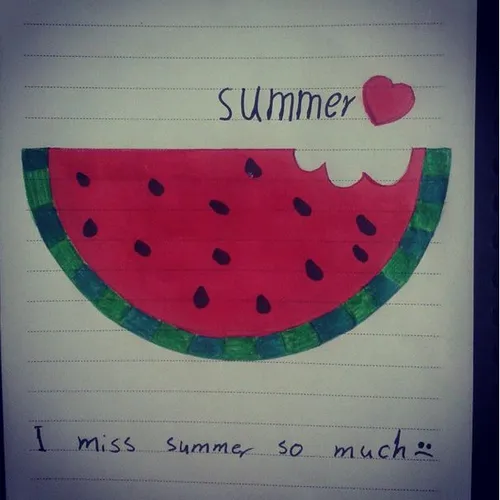 summer
I miss summer so much